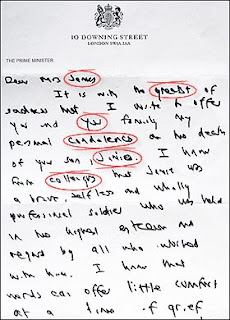 10 DOWNING STREET
LONDON SW1A 2AA
THE PRIME MINISTER
Dear Mrs James
It is with the greatest of
sadness that I write to offer
you and you family my
personal condolences on the death
of your son, Jamie. I know
from colleagues that Jamie was
a brave, selfless and wholly
professional soldier who was held
in the highest esteem and
regard by all who worked
with him. I know that
words can offer little comfort
at a time of grief